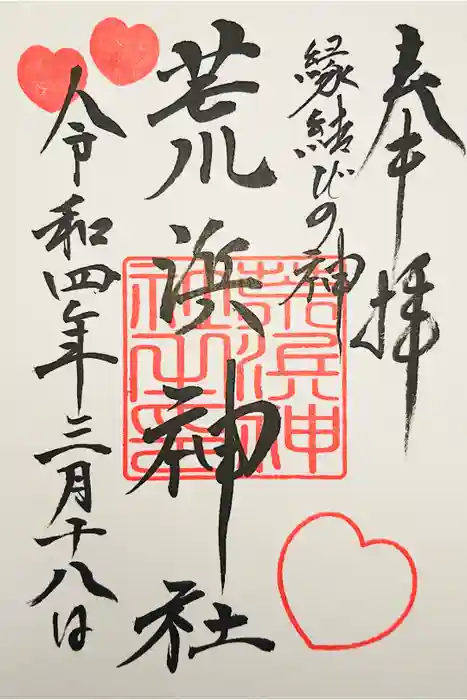 奉拝
縁結びの神
荒浜神社
荒浜神社之印
令和四年三月十八日